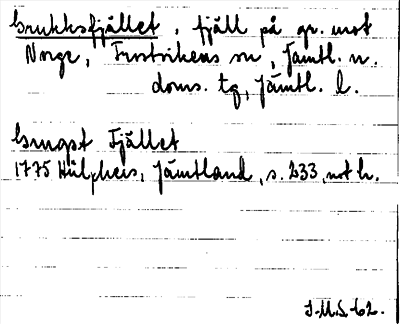 Grukksfjället, fjäll på gr. mot
Norge, Frostvikens sn, Jämtl. n.
doms. tg, Jämtl. l.
Grugst Fjället
1775 Hülpheis, Jämtland, s. 233, not h.
I.M.S. 62.